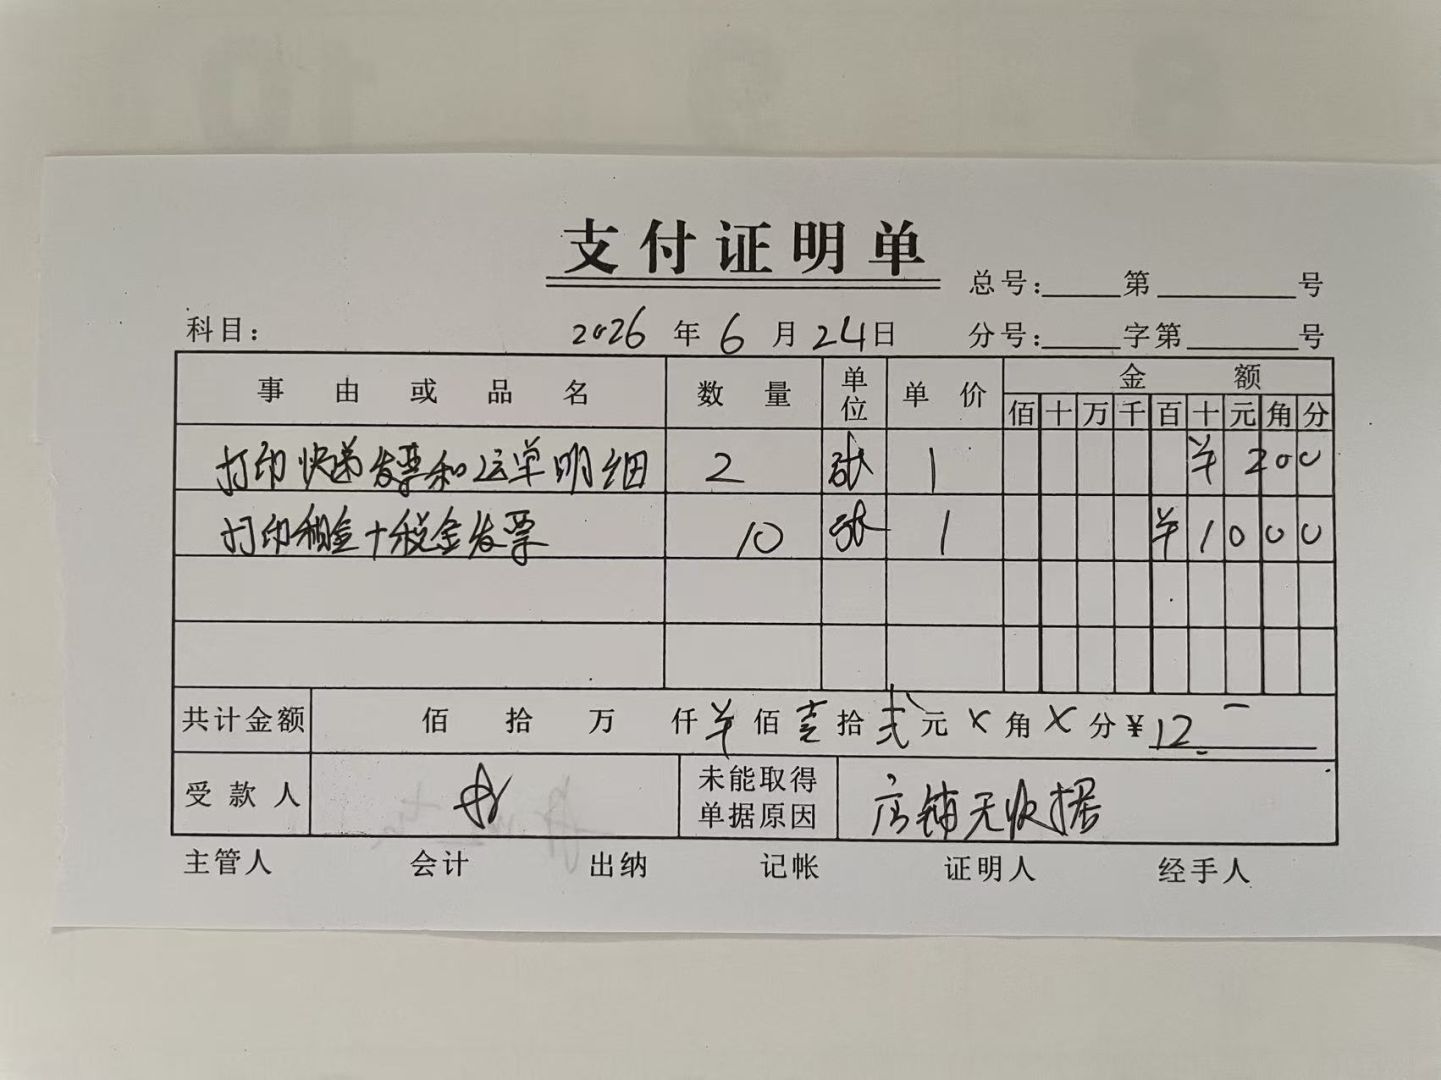 支付证明单
总号：　第　号
科目：　2026年6月24日　分号：　字第　号
事由或品名　数量　单位　单价　金额
佰十万千百十元角分
打印快递发票和运单明细　2　张　1　¥200
打印租金+税金发票　10　张　1　¥1000
共计金额　佰　拾　万　仟¥佰壹拾贰元×角×分¥12.–
受款人　未能取得单据原因　店铺无收据
主管人　会计　出纳　记帐　证明人　经手人